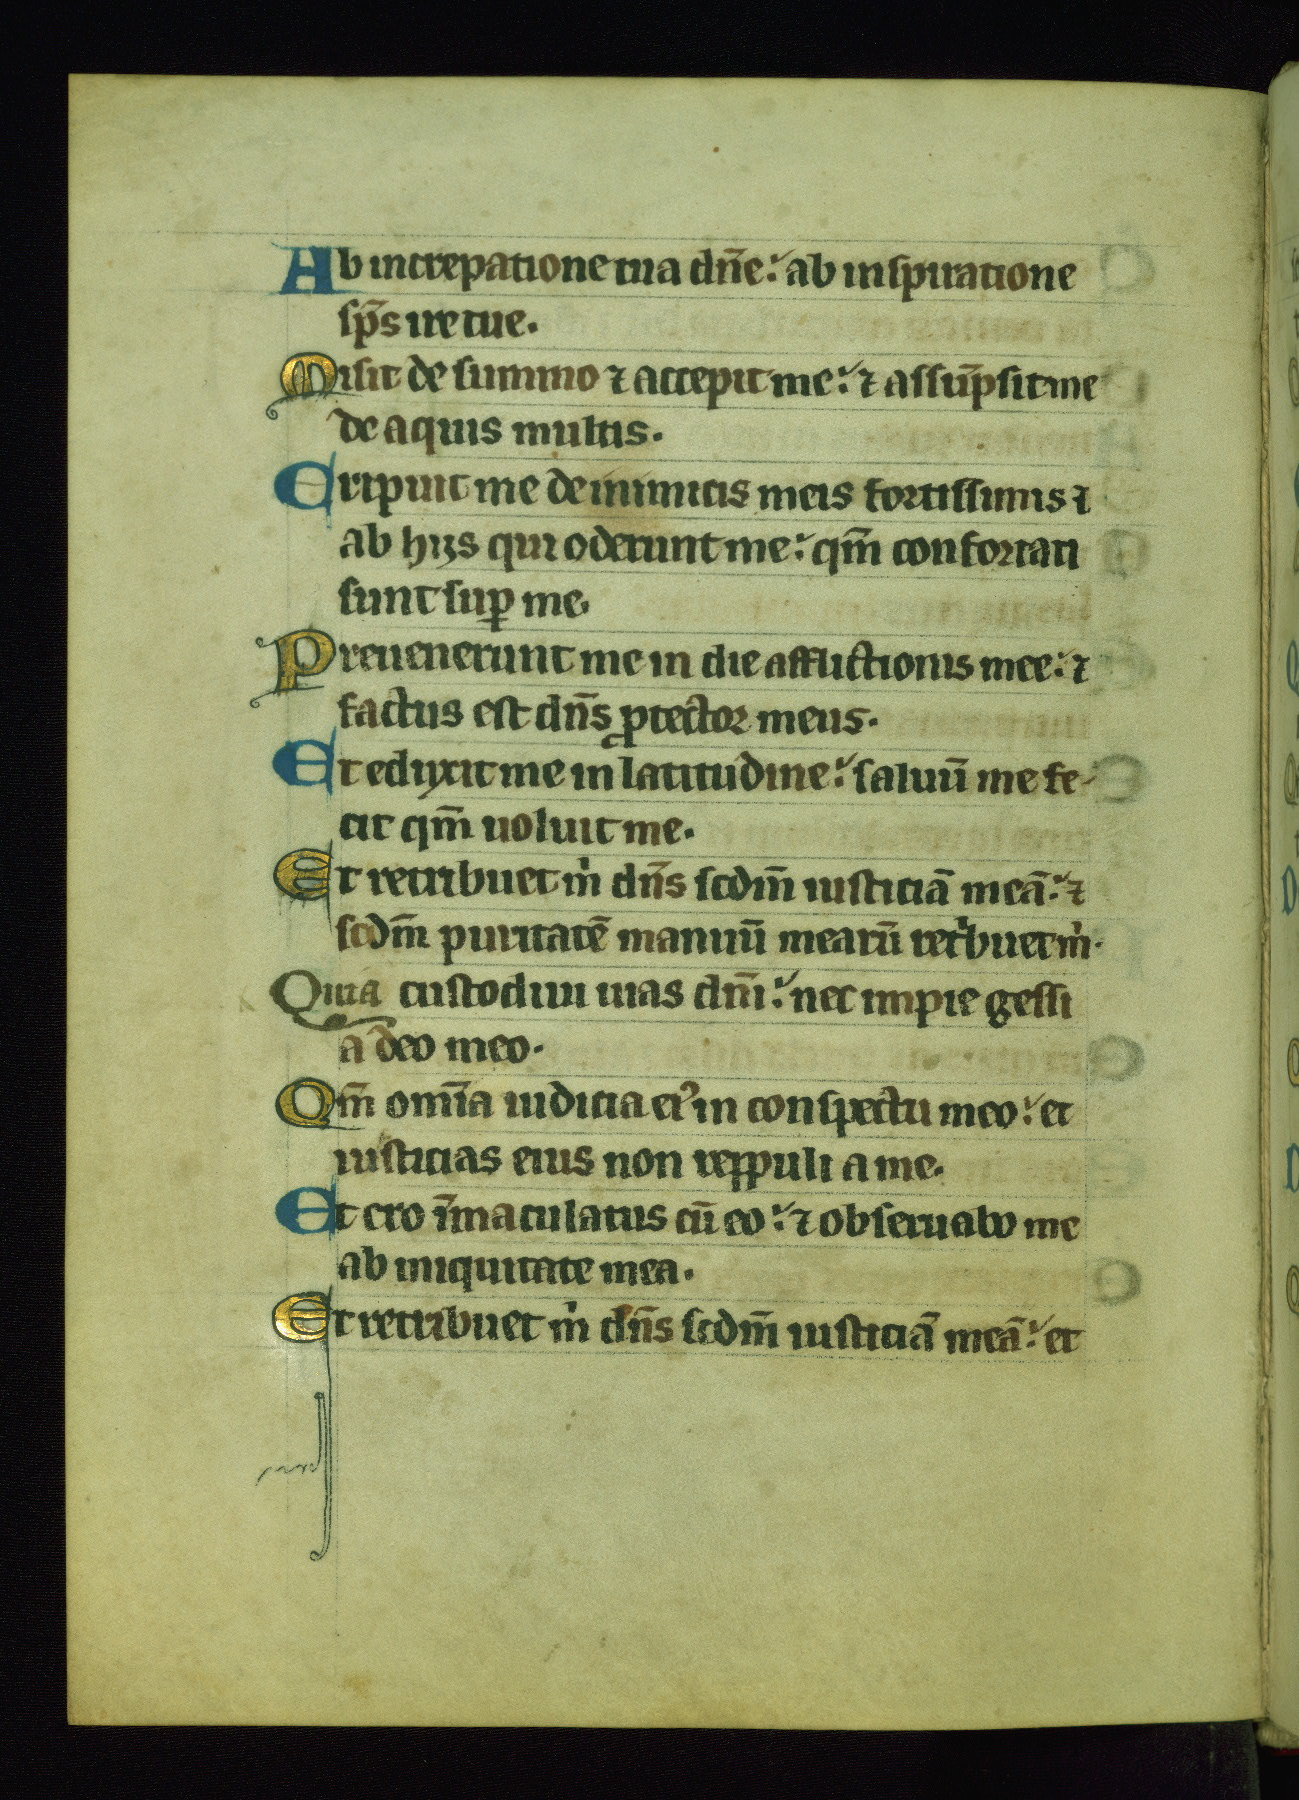 Ab increpatione tua dn̄e: ab inspiratione
sp̄s ire tue.
Misit de summo ⁊ accepit me: ⁊ assūpsit me
de aquis multis.
Eripuit me de inimicis meis fortissimis ⁊
ab hijs qui oderunt me: qm̄ confortati
sunt suꝑ me.
Preuenerunt me in die afflictionis mee: ⁊
factus est dn̄s ꝓtector meus.
Et eduxit me in latitudine: saluū me fe-
cit qm̄ uoluit me.
Et retribuet m̍ dn̄s scdm̄ iusticiā meā: ⁊
scdm̄ puritatē manuū mearū ret̍buet m̍.
Quia custodiui uias dn̄i: nec impie gessi
a deo meo.
Qm̄ omīa iudicia ei᾽ in conspectu meo: et
iusticias eius non reppuli a me.
Et ero īmaculatus cū eo: ⁊ obseruabo me
ab iniquitate mea.
Et retribuet m̍ dn̄s scdm̄ iusticiā meā: et